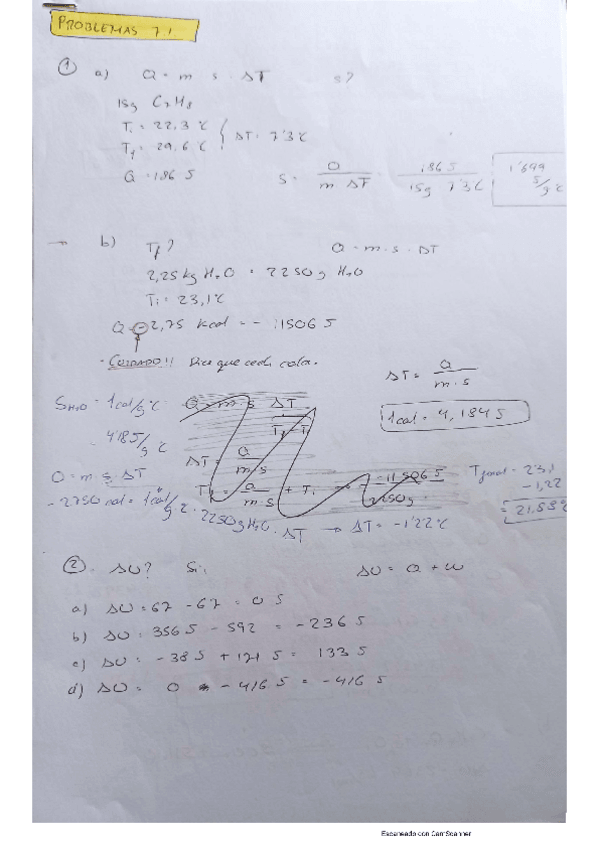 PROBLEMAS 7.1
① a) Q = m · s · ΔT s?
15g C7H8
Ti = 22,3 ºC
Tf = 29,6 ºC } ΔT = 7'3ºC
Q = 186 J S = Q / m ΔT = 186 J / 15g 7'3ºC 1'699 J/gºC
→ b) Tf? Q = m · s · ΔT
2,25 kg H2O = 2250 g H2O
Ti = 23,1ºC
Q = -2,75 kcal = - 11506 J
· CUIDADO!! Dice que cede calor.
ΔT = Q / m · s
SH2O = 1cal/gºC Q = m · s ΔT
1cal = 4,184 J
= 4'18 J/g ºC ΔT = Q / m/s
Q = m · s · ΔT
Tf = Q / m · s + Ti
- 2750 cal = 1cal/gºC · 2250g H2O · ΔT → ΔT = -1'22ºC
- 1,22
② ΔU? Si: ΔU = Q + W
a) ΔU = 67 - 67 = 0 J
b) ΔU = 356 J - 592 = -236 J
c) ΔU = -38 J + 171 J = 133 J
d) ΔU = 0 - 416 J = -416 J
Escaneado con CamScanner